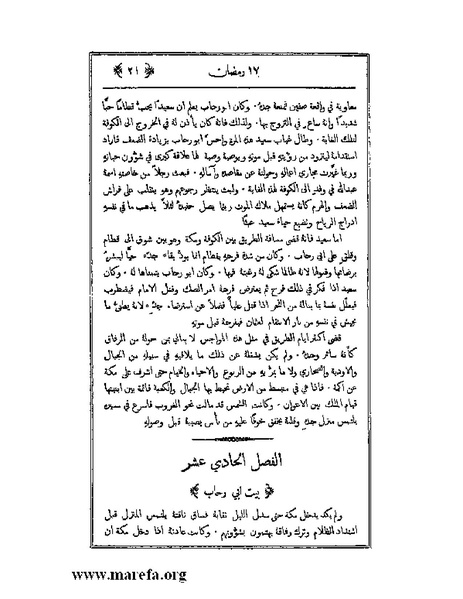 ١٧ رمضان
﴿ ٢١ ﴾
معاوية في واقعة صفين فمنعة جدهُ . وكان ابو رحاب يعلم ان سعيدًا يحب قطامًا حبًّا
شديدًا وانه ساعٍ في التزوج بها . ولذلك فانه كان يأذن له في الخروج الى الكوفة
لتلك الغاية . وطال غياب سعيد هذه المرة واحس ابو رحاب بزيادة الضعف فاراد
استقدامه ليتزود من رؤيته قبل موته ويوصيه وصية لها علاقة كبرى في شؤون حياته
وربما غيَّرت مجاري اعماله وحولته عن مقاصده وآماله . فبعث رجلاً من خاصته اسمه
عبدالله في وفد الى الكوفة لهذه الغاية . ولبث ينتظر رجوعهم وهو يتقلب على فراش
الضعف والهرم كأنه يستمهل ملاك الموت ريثما يصل حفيدهُ لئلا يذهب ما في نفسه
ادراج الرياح وتضيع حياة سعيد عبثًا
اما سعيد فانه قضى مسافة الطريق بين الكوفة ومكة وهو بين شوق الى قطام
وقلق على ابي رحاب . وكان من شدة فرحه بقطام انما يودُّ بقاء جدهِ حيًّا ليبشرهُ
برضائها وقبولها لانه طالما شكى لهُ رغبته فيها . وكان ابو رحاب يتمناها له . وكان
سعيد اذا فكر في ذلك فرح ثم يعترض فرحه امر الصك وقتل الامام فيضطرب
فيعلل نفسهُ بما يناله من الفخر اذا قتل عليًّا فضلاً عن استرضاء جدهِ لانه يطفئ ما
يجيش في نفسهِ من نار الانتقام لعثمان فيفرحه قبل موتهِ
قضى اكثر ايام الطريق في مثل هذه الهواجس لا يبالي بمن حوله من الرفاق
كأنه سائر وحدهُ . ولم يكن يشغله عن ذلك ما يلاقيه في سبيله من الجبال
والاودية والصحاري ولا ما يمرُّ به من الربوع والاحياء والخيام حتى اشرف على مكة
عن اكمة . فاذا هي في منبسط من الارض تحيط بها الجبال والكعبة قائمة بين ابنيتها
قيام الملك بين الاعوان . وكانت الشمس قد مالت نحو الغروب فاسرع في مسيره
يلتمس منزل جدهِ وقلبه يخفق خوفًا عليه من بأس يصيبه قبل وصوله
الفصل الحادي عشر
﴿ بيت ابي رحاب ﴾
ولم يكد يدخل مكة حتى سدل الليل نقابه فساق ناقته يلتمس المنزل قبل
اشتداد الظلام وترك رفاقه يهتمون بشؤونهم . وكانت عادته اذا دخل مكة ان
www.marefa.org